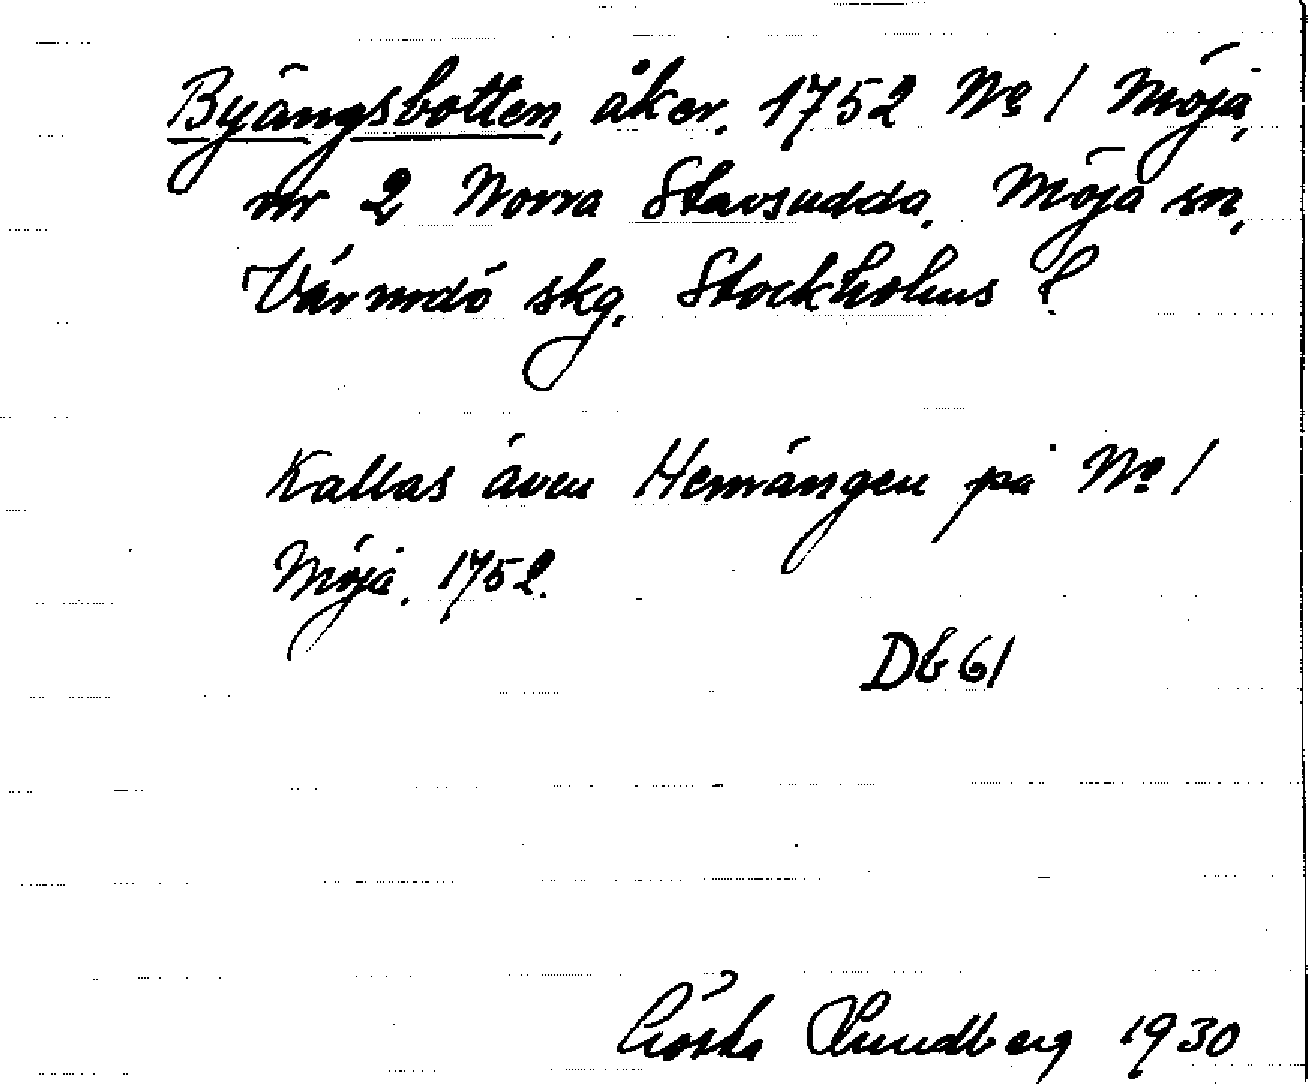 Byängsbotten, åker. 1752 No 1 Möja,
nr 2 Norra Stavsudda, Möja sn,
Värmdö skg, Stockholms l.
Kallas även Hemängen på No 1
Möja. 1752.
Db 61
Gösta Lundberg 1930